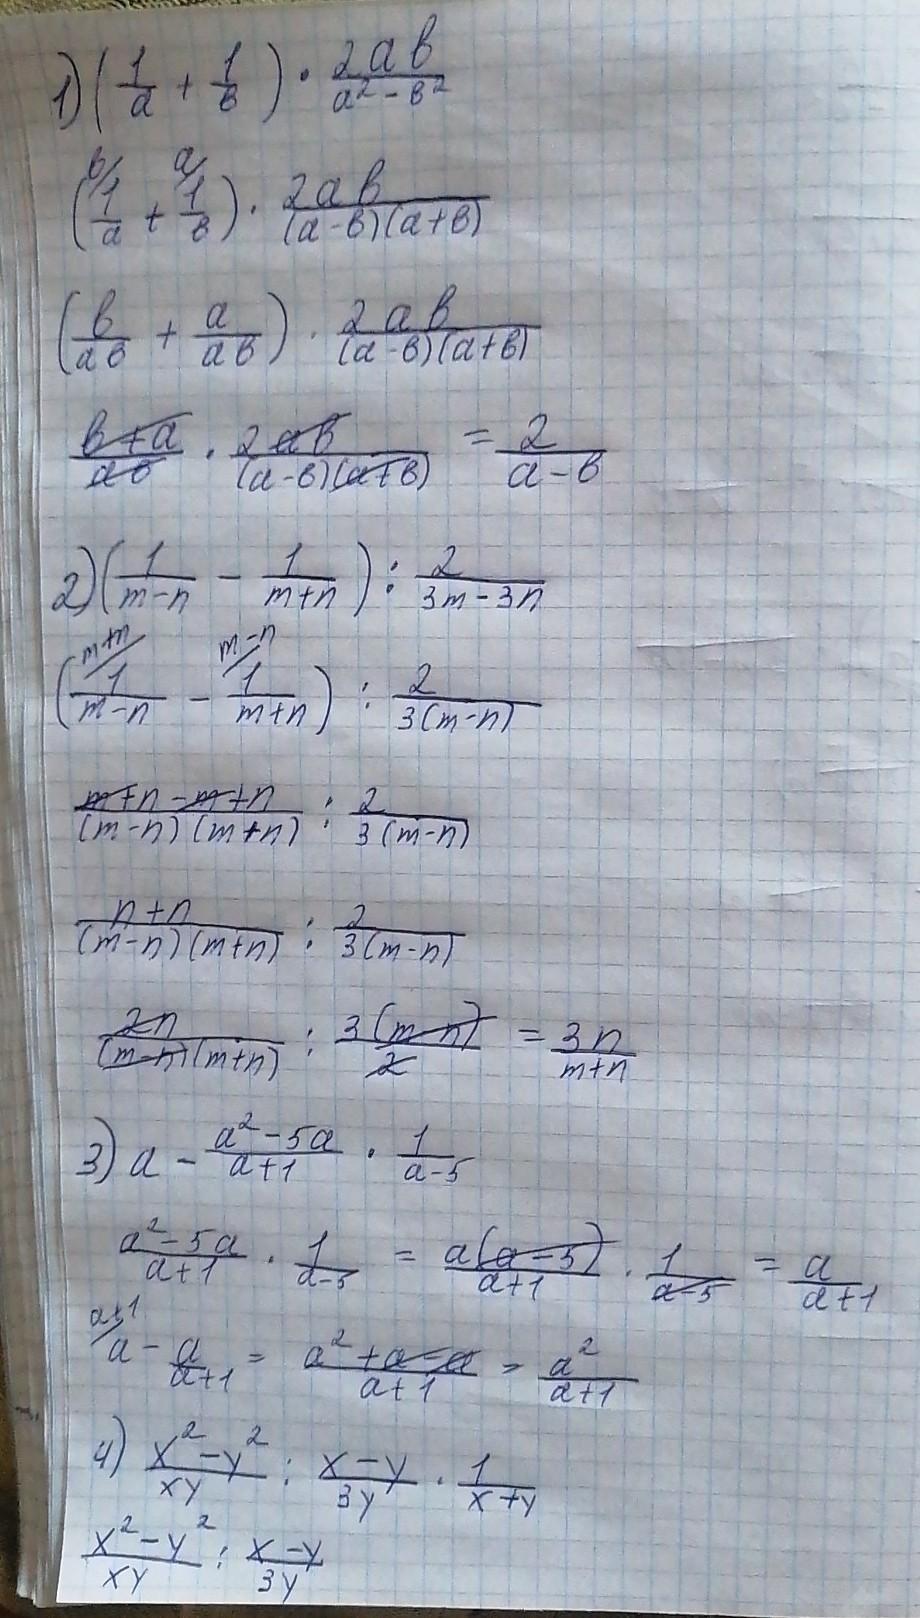 1) (1/a + 1/b) · 2ab/(a² - b²)
(b/ 1/a + a/ 1/b) · 2ab/((a-b)(a+b))
(b/ab + a/ab) · 2ab/((a-b)(a+b))
(b+a)/ab · 2ab/((a-b)(a+b)) = 2/(a-b)
2) (1/(m-n) - 1/(m+n)) : 2/(3m-3n)
(m+n/ 1/(m-n) - m-n/ 1/(m+n)) : 2/(3(m-n))
(m+n-m+n)/((m-n)(m+n)) : 2/(3(m-n))
(n+n)/((m-n)(m+n)) : 2/(3(m-n))
2n/((m-n)(m+n)) : 3(m-n)/2 = 3n/(m+n)
3) a - (a²-5a)/(a+1) · 1/(a-5)
(a²-5a)/(a+1) · 1/(a-5) = a(a-5)/(a+1) · 1/(a-5) = a/(a+1)
a+1/ a - a/(a+1) = (a²+a-a)/(a+1) = a²/(a+1)
4) (x²-y²)/xy : (x-y)/3y · 1/(x+y)
(x²-y²)/xy : (x-y)/3y